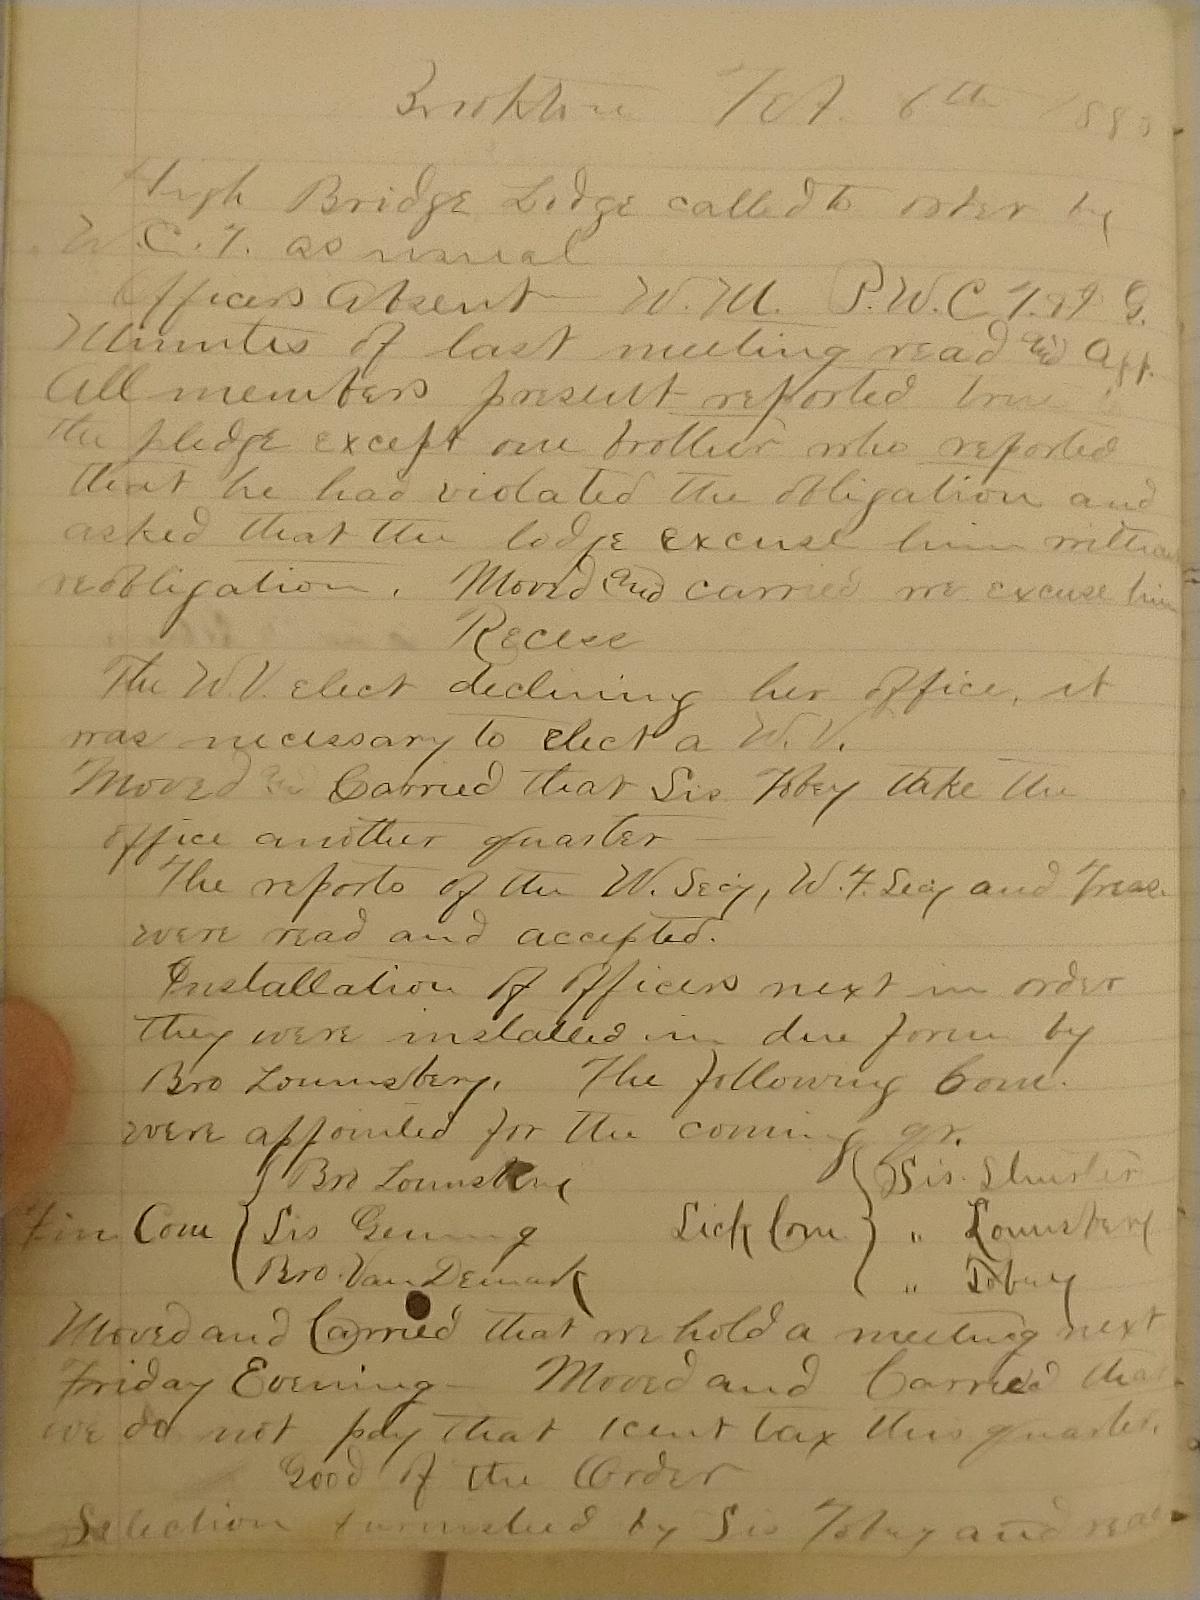 Brookton Feb. 6th 188
High Bridge Lodge called to order by
W.C.T. as usual
Officers Absent W.M. P.W.C.T. & I G.
Minutes of last meeting read and App.
All members present reported true
the pledge except one brother who reported
that he had violated the obligation and
asked that the lodge excuse him without
reobligation. Moved and carried we excuse him
Recess
The W.V. elect declining her office, it
was necessary to elect a W.V.
Moved and Carried that Sis Tobey take the
office another quarter
The reports of the W. Secy, W.F. Secy and Treas.
were read and accepted.
Installation of officers next in order
they were installed in due form by
Bro Lounsbery. The following Com.
were appointed for the coming qr.
Bro Lounsbery Sis. Shuster
Fin Com Sis Genung Sick Com " Lounsbery
Bro. VanDemark " Tobey
Moved and Carried that we hold a meeting next
Friday Evening Moved and Carried that
we do not pay that 1 cent tax this quarter.
Good of the Order
Selection furnished by Sis Tobey and